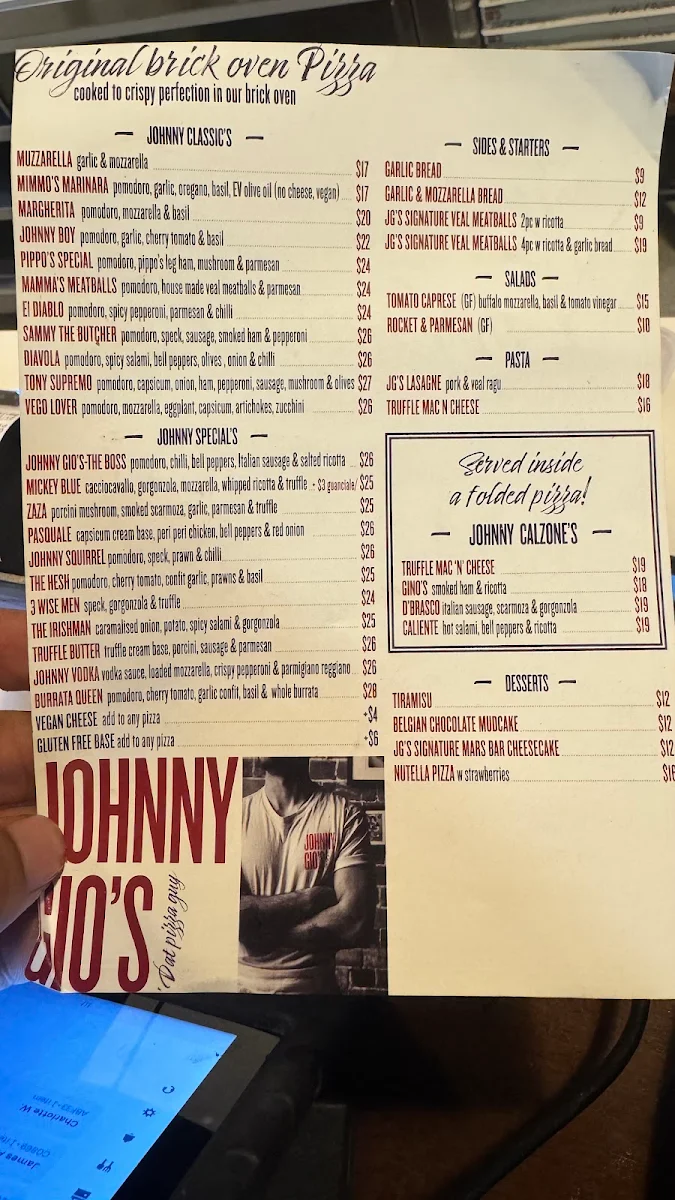 Original brick oven Pizza
cooked to crispy perfection in our brick oven
JOHNNY CLASSIC'S
MUZZARELLA garlic & mozzarella $17
MIMMO'S MARINARA pomodoro, garlic, oregano, basil, EV olive oil (no cheese, vegan) $17
MARGHERITA pomodoro, mozzarella & basil $20
JOHNNY BOY pomodoro, garlic, cherry tomato & basil $22
PIPPO'S SPECIAL pomodoro, pippo's leg ham, mushroom & parmesan $24
MAMMA'S MEATBALLS pomodoro, house made veal meatballs & parmesan $24
El DIABLO pomodoro, spicy pepperoni, parmesan & chilli $24
SAMMY THE BUTCHER pomodoro, speck, sausage, smoked ham & pepperoni $26
DIAVOLA pomodoro, spicy salami, bell peppers, olives, onion & chilli $26
TONY SUPREMO pomodoro, capsicum, onion, ham, pepperoni, sausage, mushroom & olives $27
VEGO LOVER pomodoro, mozzarella, eggplant, capsicum, artichokes, zucchini $26
JOHNNY SPECIAL'S
JOHNNY GIO'S-THE BOSS pomodoro, chilli, bell peppers, Italian sausage & salted ricotta $26
MICKEY BLUE cacciocavallo, gorgonzola, mozzarella, whipped ricotta & truffle + $3 guanciale/ $25
ZAZA porcini mushroom, smoked scarmoza, garlic, parmesan & truffle $25
PASQUALE capsicum cream base, peri peri chicken, bell peppers & red onion $26
JOHNNY SQUIRREL pomodoro, speck, prawn & chilli $26
THE HESH pomodoro, cherry tomato, confit garlic, prawns & basil $25
3 WISE MEN speck, gorgonzola & truffle $24
THE IRISHMAN caramalised onion, potato, spicy salami & gorgonzola $25
TRUFFLE BUTTER truffle cream base, porcini, sausage & parmesan $26
JOHNNY VODKA vodka sauce, loaded mozzarella, crispy pepperoni & parmigiano reggiano $26
BURRATA QUEEN pomodoro, cherry tomato, garlic confit, basil & whole burrata $28
VEGAN CHEESE add to any pizza +$4
GLUTEN FREE BASE add to any pizza +$6
JOHNNY
GIO'S
'Dat pizza guy
JOHNNY
GIO'S
SIDES & STARTERS
GARLIC BREAD $9
GARLIC & MOZZARELLA BREAD $12
JG'S SIGNATURE VEAL MEATBALLS 2pc w ricotta $9
JG'S SIGNATURE VEAL MEATBALLS 4pc w ricotta & garlic bread $19
SALADS
TOMATO CAPRESE (GF) buffalo mozzarella, basil & tomato vinegar $15
ROCKET & PARMESAN (GF) $10
PASTA
JG'S LASAGNE pork & veal ragu $18
TRUFFLE MAC N CHEESE $16
Served inside
a folded pizza!
JOHNNY CALZONE'S
TRUFFLE MAC 'N' CHEESE $19
GINO'S smoked ham & ricotta $18
D'BRASCO italian sausage, scarmoza & gorgonzola $19
CALIENTE hot salami, bell peppers & ricotta $19
DESSERTS
TIRAMISU $12
BELGIAN CHOCOLATE MUDCAKE $12
JG'S SIGNATURE MARS BAR CHEESECAKE $12
NUTELLA PIZZA w strawberries
Charlotte W.
James